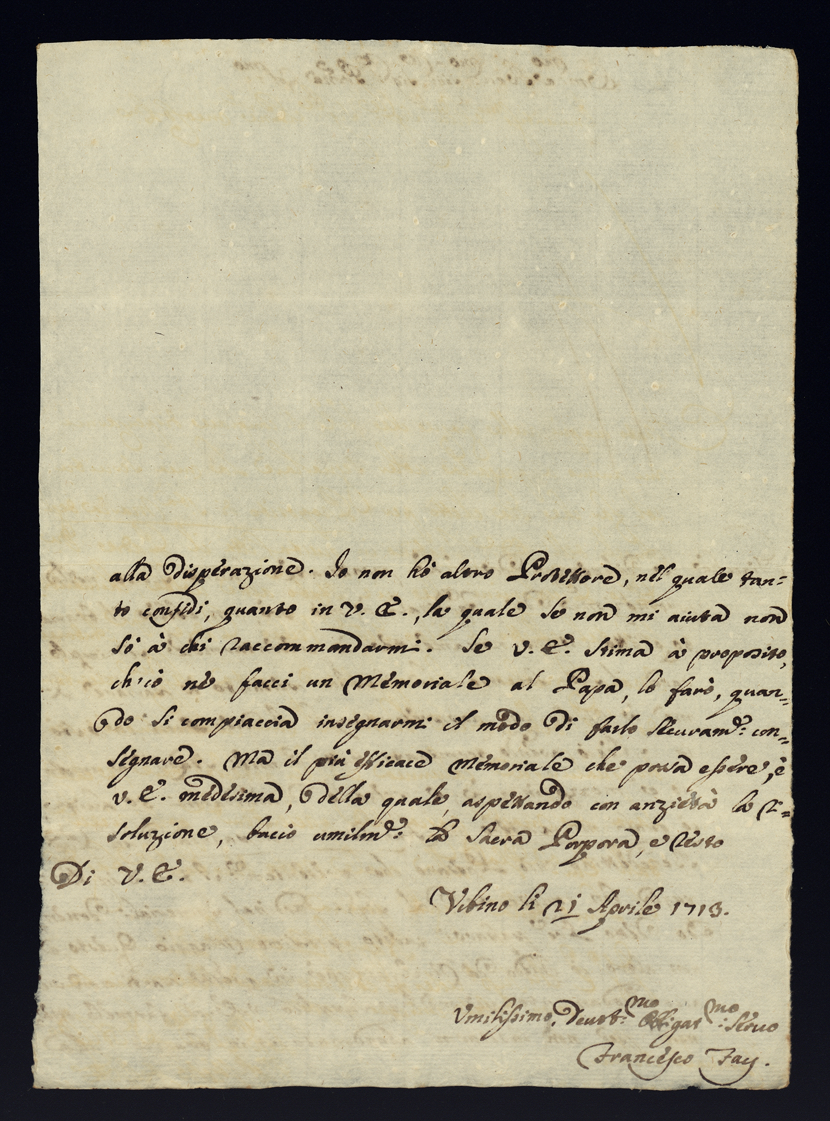 alla disperazione. Io non hò altro Protettore, nel quale tan=
to confidi, quanto in V. E., la quale se non mi aiuta non
sò à chi raccommandarmi. Se V. E. stima à proposito,
ch'iò nè facci un Memoriale al Papa, lo farò, quan=
do si compiaccia insegnarmi il modo di farlo sicuram.e: con=
segnare. Ma il più efficace Memoriale che possa essere, è
V. E. medesima, della quale, aspettando con anzietà la ri=
soluzione, bacio umilm.e: la Sacra Porpora, e resto
Di V. E.
Vrbino li 21 Aprile 1713.
Vmilissimo, Deuot:mo Obligat:mo Seruo
Francesco Fay.